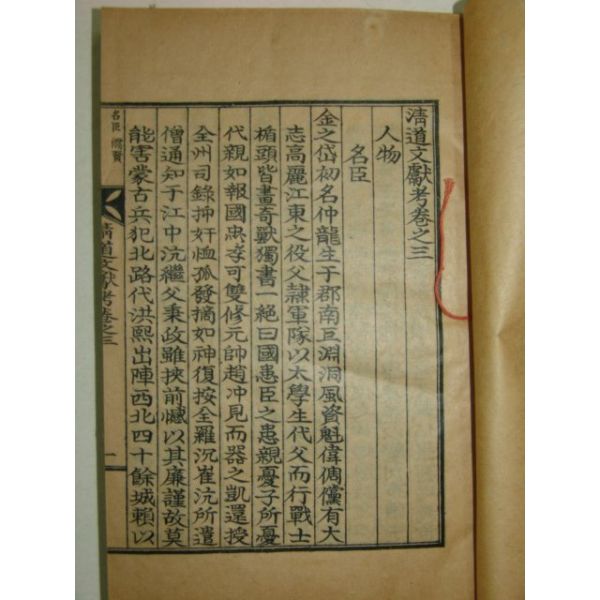 淸道文獻考卷之三
人物
名臣
金之岱初名仲龍生于郡南巨淵洞風資魁偉倜儻有大
志高麗江東之役父隷軍隊以太學生代父而行戰士
楯頭皆畫奇獸獨書一絶曰國患臣之患親憂子所憂
代親如報國忠孝可雙修元帥趙冲見而器之凱還授
全州司錄抻奸恤孤發摘如神復按全羅沉崔沆所遣
僧通知于江中沆繼父秉政雖挾前憾以其廉謹故莫
能害蒙古兵犯北路代洪熙出陣西北四十餘城賴以
名臣 儒賢
淸道文獻考卷之三
一